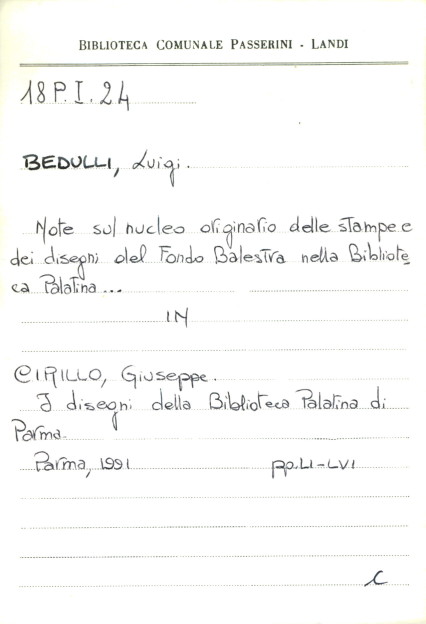 BIBLIOTECA COMUNALE PASSERINI - LANDI
18 P.I.24
BEDULLI, Luigi.
Note sul nucleo originario delle stampe e
dei disegni del Fondo Balestra nella Bibliote
ca Palatina...
IN
CIRILLO, Giuseppe.
I disegni della Biblioteca Palatina di
Parma.
Parma, 1991 pp.LI-LVI
C